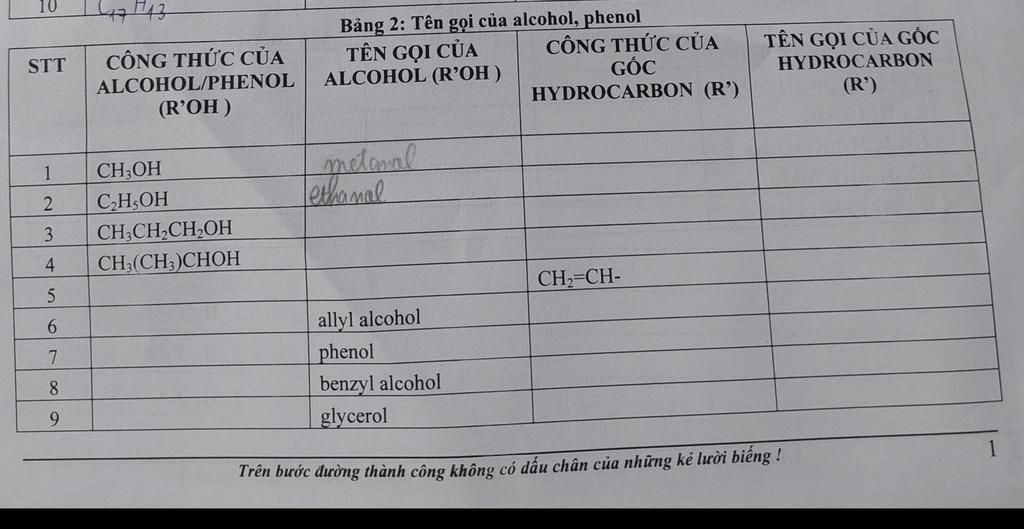 10 C₁₇H₁₃
Bảng 2: Tên gọi của alcohol, phenol
STT CÔNG THỨC CỦA ALCOHOL/PHENOL (R'OH ) TÊN GỌI CỦA ALCOHOL (R'OH ) CÔNG THỨC CỦA GỐC HYDROCARBON (R') TÊN GỌI CỦA GỐC HYDROCARBON (R')
1 CH₃OH metomal
2 C₂H₅OH ethanal
3 CH₃CH₂CH₂OH
4 CH₃(CH₃)CHOH
5 CH₂=CH-
6 allyl alcohol
7 phenol
8 benzyl alcohol
9 glycerol
Trên bước đường thành công không có dấu chân của những kẻ lười biếng !
1